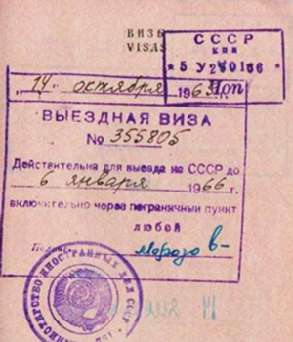 ВИЗЫ
VISAS
СССР
КПП
"14" октября 196
ВЫЕЗДНАЯ ВИЗА
№ 355805
Действительна для выезда из СССР до
6 января 1966 г.
включительно через пограничный пункт
любой
МИНИСТЕРСТВО ИНОСТРАННЫХ ДЕЛ СССР